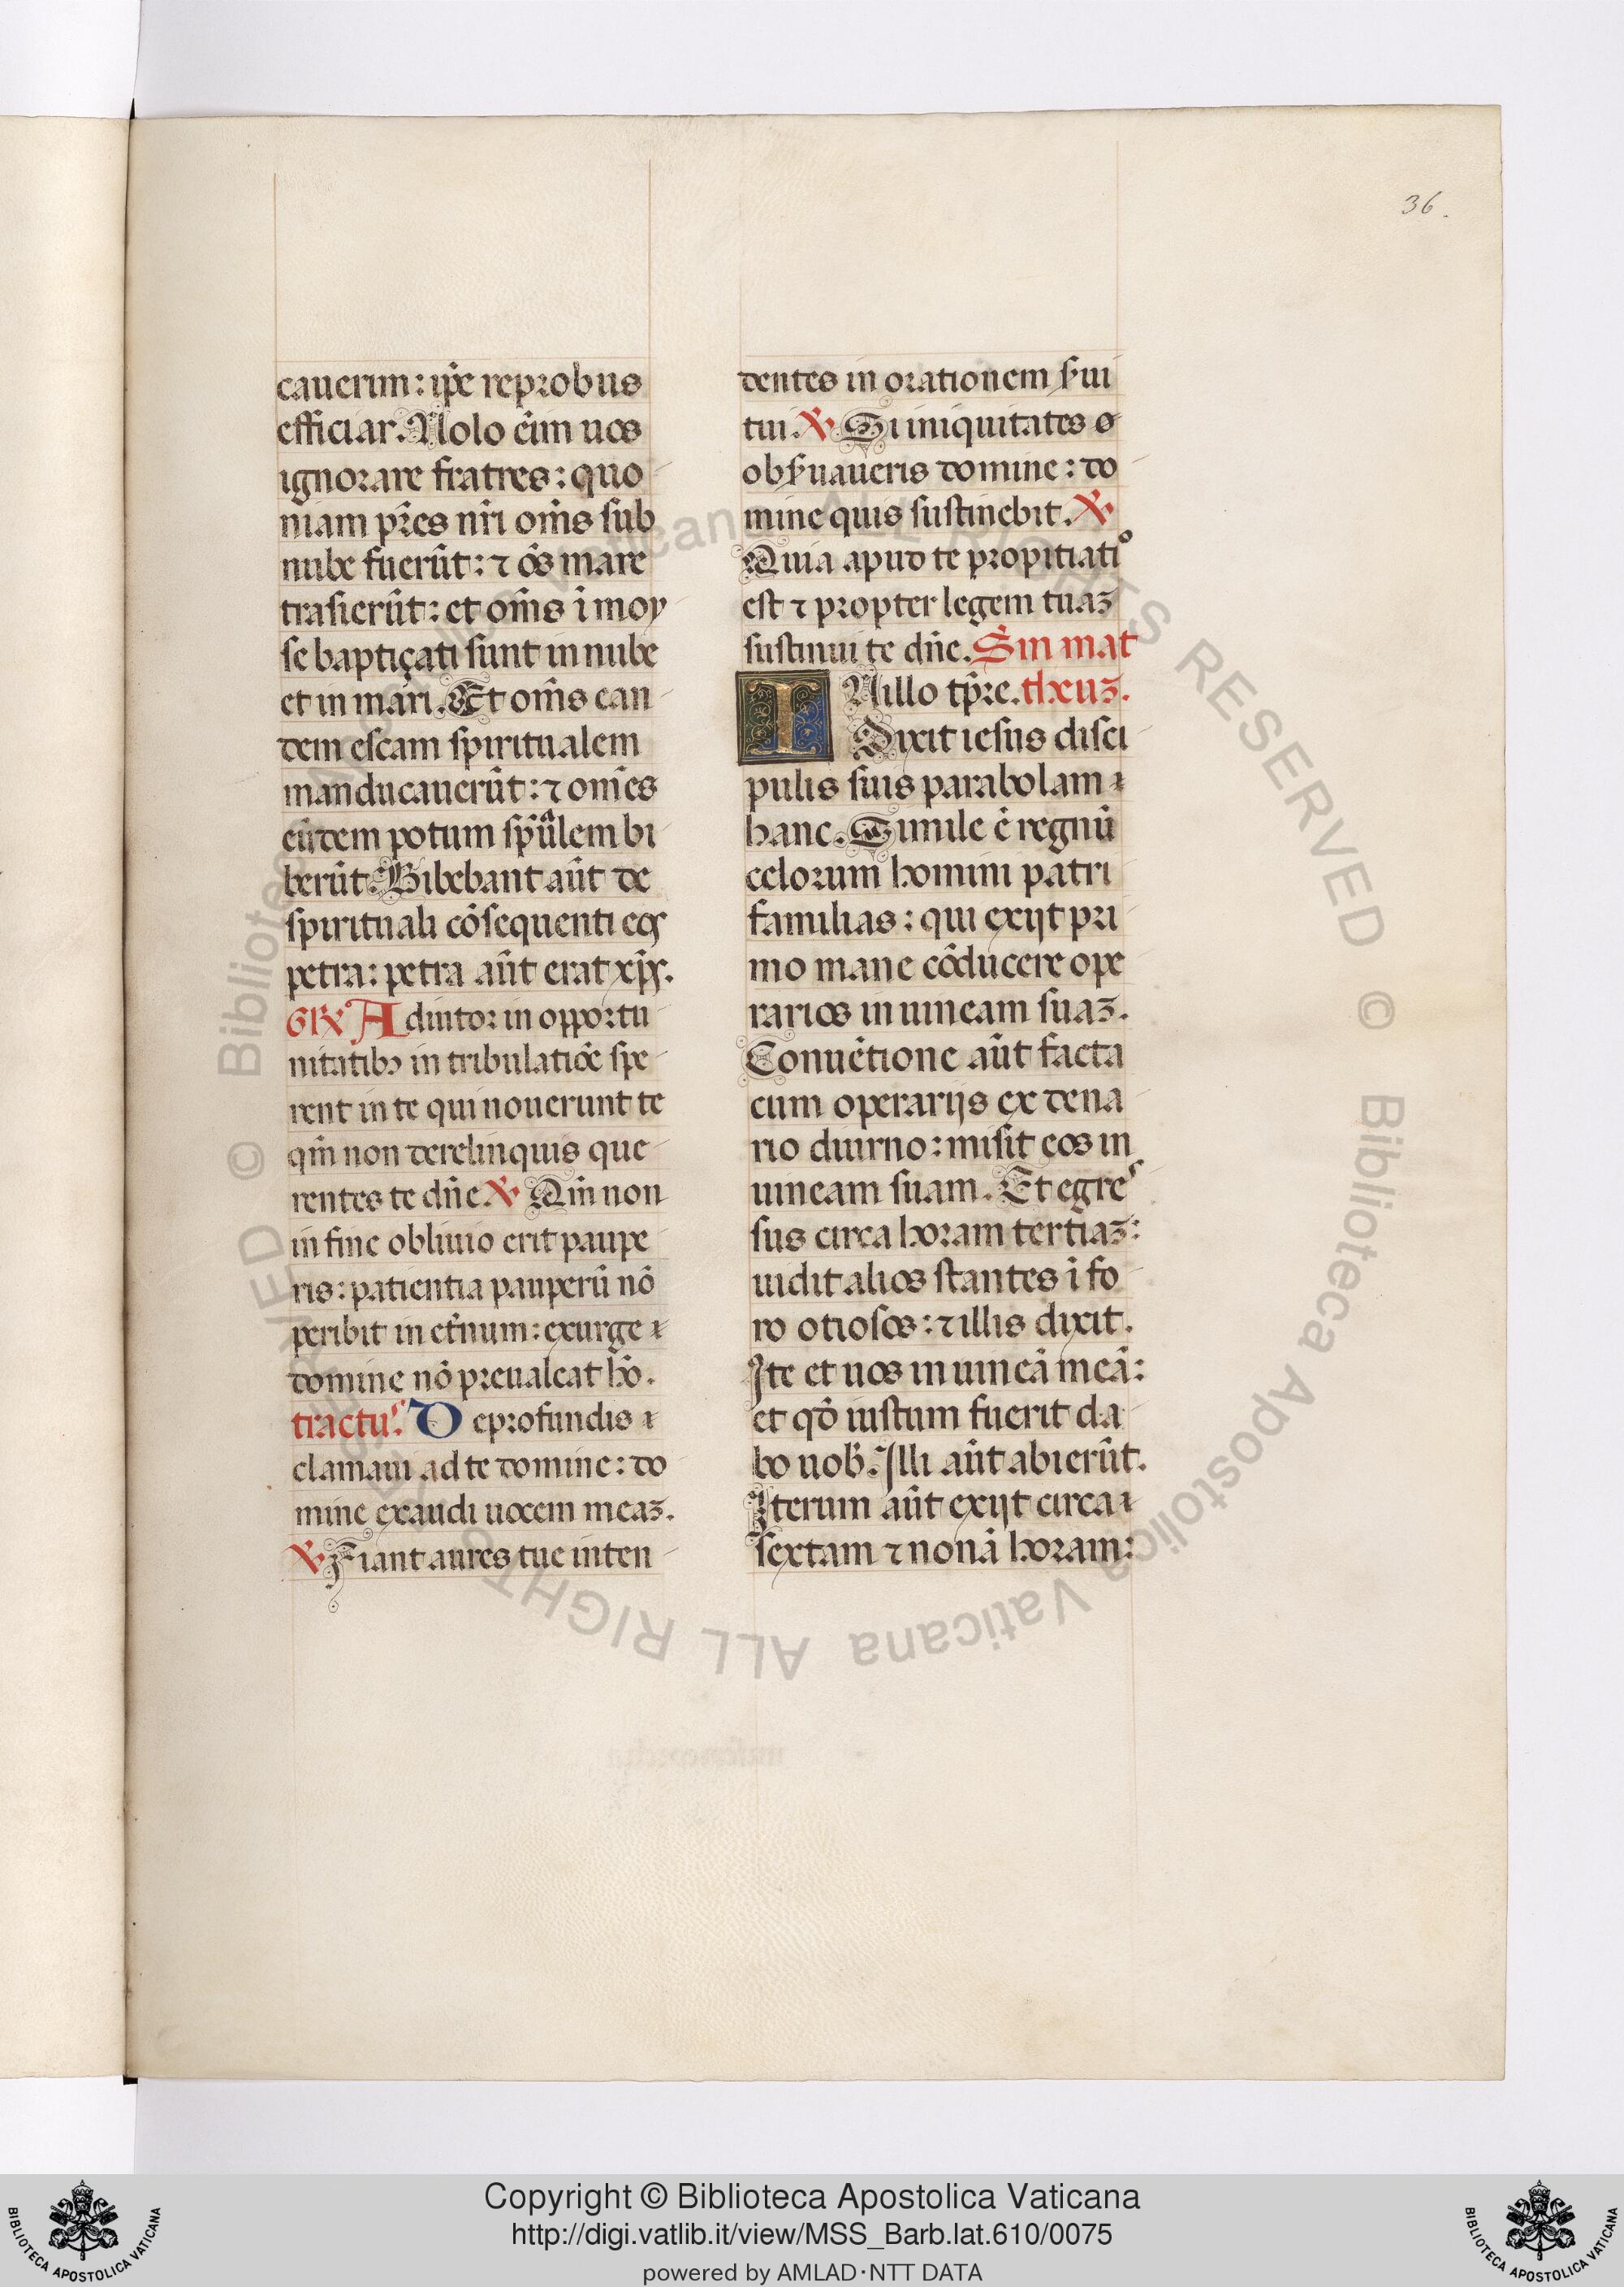 36.
cauerim: ip̃e reprobus
efficiar. Nolo ei̇m uos
ignorare fratres: quo
niam pr̃es nr̃i om̃s sub
nube fuerũt: ⁊ o᷒s mare
trãsierũt: et om̃s ĩ moy
se baptiçati sunt in nube
et in mari. Et om̃s ean
dem escam spiritualem
manducauerũt: ⁊ om̃es
eũdem potum sp̃ũalem bi
berũt. Bibebant aũt de
spirituali cõsequenti eos
petra: petra aũt erat xp̃s.
GR̃ Adiutor in opportu
nitatibꝫ in tribulatiõe spe
rent in te qui nouerunt te
qm̃ non derelinquis que
rentes te dñe ℣ Qm̃ non
in fine obliuio erit paupe
ris: patientia pauperũ nõ
peribit in et̃num: exurge
domine nõ preualeat hõ.
tractus. De profundis
clamaui ad te domine: do
mine exaudi uocem meaꝫ.
℣ Fiant aures tue inten
dentes in orationem s̃ui
tui. ℣ Si iniquitates o
obs̃uaueris domine: do
mine quis sustinebit. ℣
Quia apud te propitiatio
est ⁊ propter legem tuaꝫ
sustinui te dñe. S̃m mat
IN illo tp̃re. theuꝫ.
Dixit iesus disci
pulis suis parabolam
hanc. Simile ẽ regnũ
celorum homini patri
familias: qui exijt pri
mo mane cõducere ope
rarios in uineam suaꝫ.
Conuẽtione aũt facta
cum operarijs ex dena
rio diurno: misit eos in
uineam suam. Et egres
sus circa horam tertiaꝫ:
uidit alios stantes ĩ fo
ro otiosos: ⁊ illis dixit.
Ite et uos in uineã meã:
et qõ iustum fuerit da
bo nob̃. Illi aũt abierũt.
Iterum aũt exijt circa
sextam ⁊ nonã horam:
© Biblioteca Apostolica Vaticana ALL RIGHTS RESERVED © Biblioteca Apostolica Vaticana ALL RIGHTS RESERVED
BIBLIOTECA APOSTOLICA VATICANA
Copyright © Biblioteca Apostolica Vaticana
http://digi.vatlib.it/view/MSS_Barb.lat.610/0075
powered by AMLAD·NTT DATA
BIBLIOTECA APOSTOLICA VATICANA